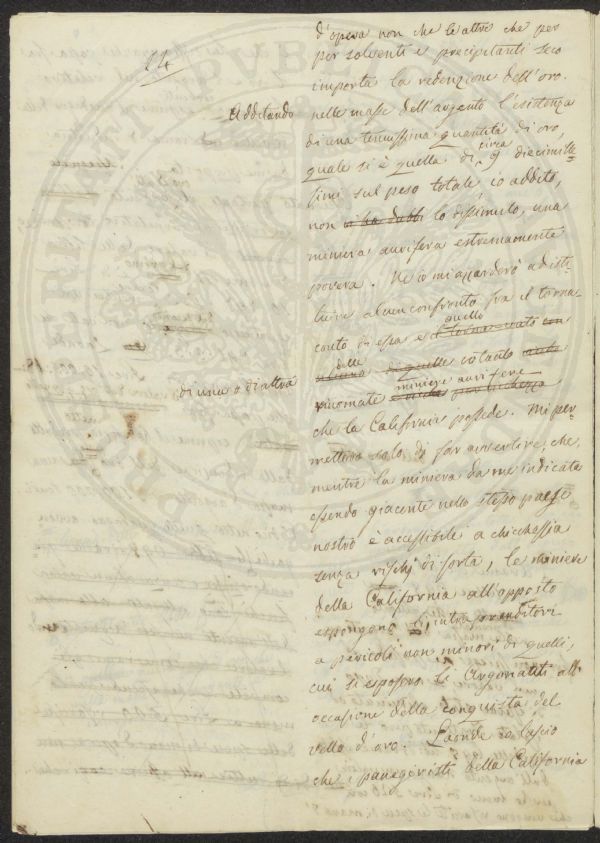 14
d'opera non che le altre che per
per solventi e precipitanti seco
importa la redenzione dell'oro.
Additando
nelle masse dell'argento l'esistenza
di una tenuissima quantità di oro,
quale si è quella di circa 9 diecimille=
simi sul peso totale io addito,
non vi ha dubbi lo dissimulo, una
miniera aurifera estremamente
povera. Ne io mi azarderò a disti=
tuire alcun confronto fra il torna=
conto di essa e quello il torna-conto con
delle di quelle cotanto
di una o di altra
rinomate miniere aurifere
che la California possede. Mi per
metterò solo di far avvertire, che
mentre la miniera da me indicata
essendo giacente nello stesso paese
nostro è accessibile a chicchessia
senza rischj di sorta, le miniere
della California all'opposto
espongono gl'intraprenditori
a pericoli non minori di quelli,
cui si esposero li Argonauti all'
occasione della conquista del
vello d'oro. Laonde io lascio
che i panegiristi della California